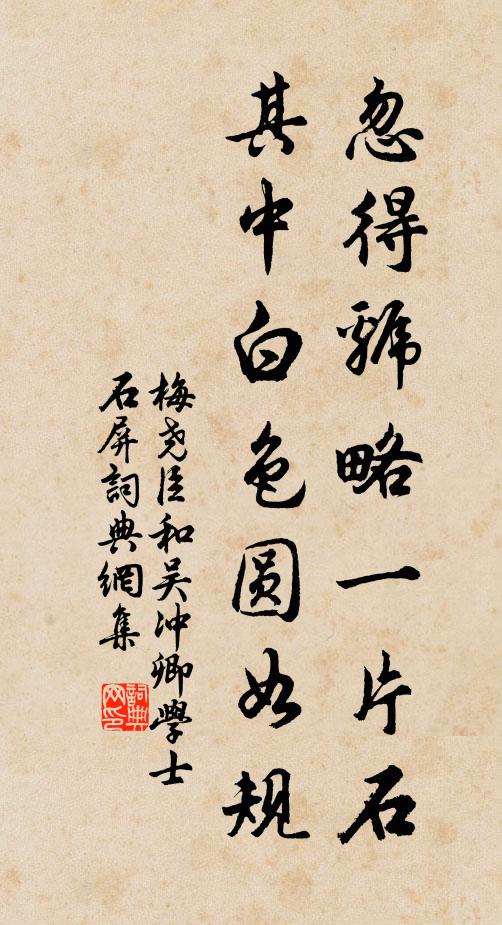 忽得虢略一片石
其中白色圆如规
梅尧臣和吴冲卿學士
石屏詞典網集
詞典网印